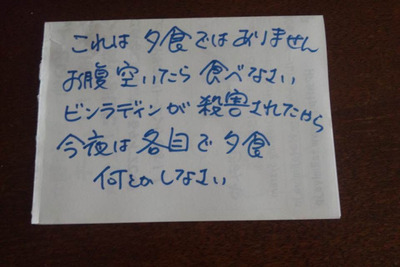 これは夕食ではありません
お腹空いたら食べなさい
ビンラディンが殺害されたから
今夜は各自で夕食
何とかしなさい